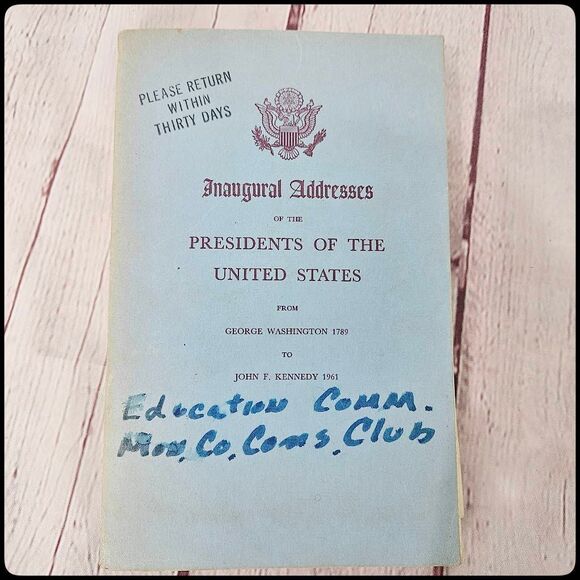 PLEASE RETURN
WITHIN
THIRTY DAYS
Inaugural Addresses
OF THE
PRESIDENTS OF THE
UNITED STATES
FROM
GEORGE WASHINGTON 1789
TO
JOHN F. KENNEDY 1961
Education Comm.
Mon. Co. Cons. Club